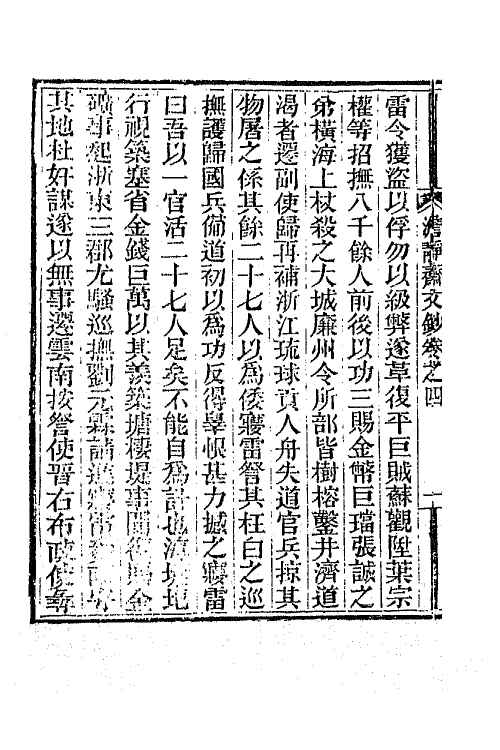 澹靜齋文鈔卷之四
雷令獲盜以俘勿以級弊遂革復平巨賊蘇觀陞葉宗
權等招撫八千餘人前後以功三賜金幣巨璫張誠之
弟橫海上杖殺之大城廉州令所部皆樹榕鑿井濟道
渴者遷副使歸再補浙江琉球貢人舟失道官兵掠其
物屠之係其餘二十七人以為倭寇雷詧其枉白之巡
撫護歸國兵備道初以為功反得舉恨甚力撼之寢雷
曰吾以一官活二十七人足矣不能自為計也滇塘圮
行視築塞省金錢巨萬以其羨築塘棲堤事聞復賜金
礦事起浙東三郡尤騷巡撫劉元霖請
其地杜奸謀遂以無事遷雲南按詧使晉右布政使尋